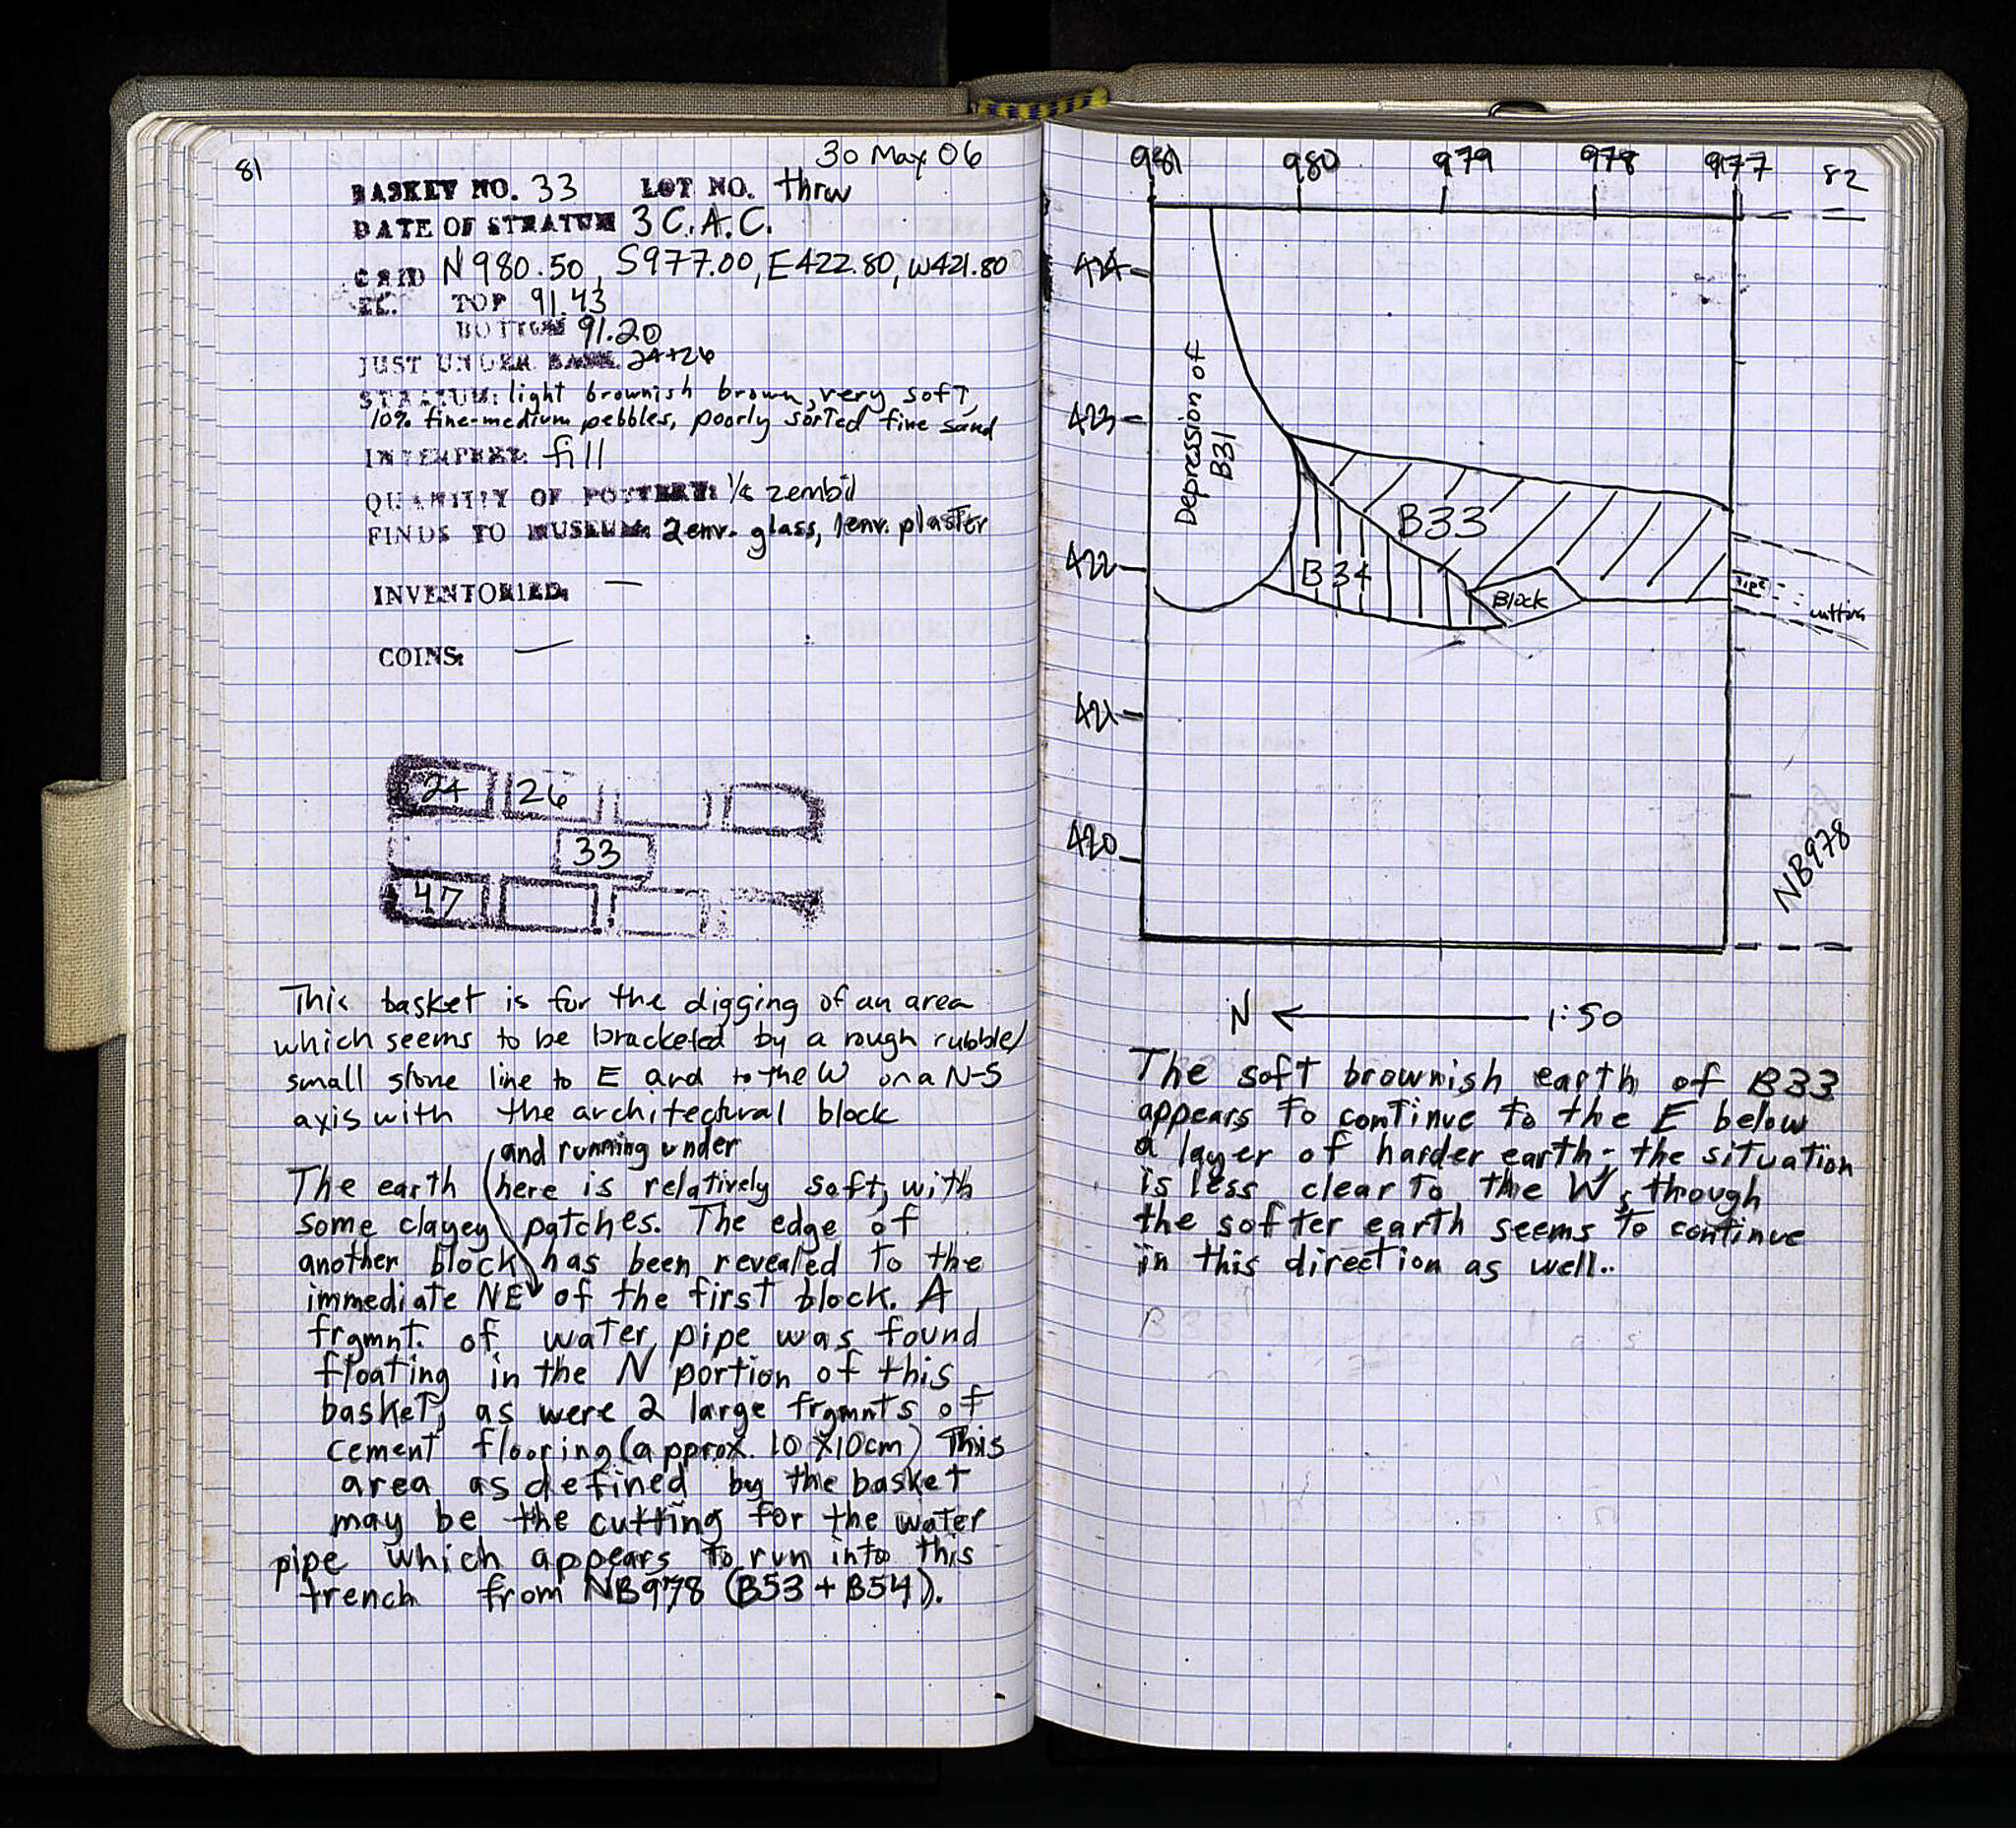 81
30 May 06
BASKET NO. 33 LOT NO. thrw
DATE OF STRATUM 3 C. A.C.
GRID N980.50, S977.00, E422.80, W421.80
EL. TOP 91.43
BOTTOM 91.20
JUST UNDER BASK. 24+26
STRATUM: light brownish brown, very soft,
10% fine-medium pebbles, poorly sorted fine sand
INTERPRET: fill
QUANTITY OF POTTERY: zembil
FINDS TO MUSEUM: 2env. glass, 1env. plaster
INVENTORIED: —
COINS: —
24 26
33
47
This basket is for the digging of an area
which seems to be bracketed by a rough rubble/
small stone line to E and to the W on a N-S
axis with the architectural block
and running under
The earth here is relatively soft, with
some clayey patches. The edge of
another block has been revealed to the
immediate NE of the first block. A
frgmnt. of water pipe was found
floating in the N portion of this
basket, as were 2 large frgmnts of
cement flooring (approx. 10 x10cm) This
area as defined by the basket
may be the cutting for the water
pipe which appears to run into this
trench from NB978 (B53 + B54).
981 980 979 978 977 82
424
423
422
421
420
Depression of
B31
B33
B34
Block
pipe
cutting
NB978
N 1:50
The soft brownish earth of B33
appears to continue to the E below
a layer of harder earth; the situation
is less clear to the W, though
the softer earth seems to continue
in this direction as well..
B33